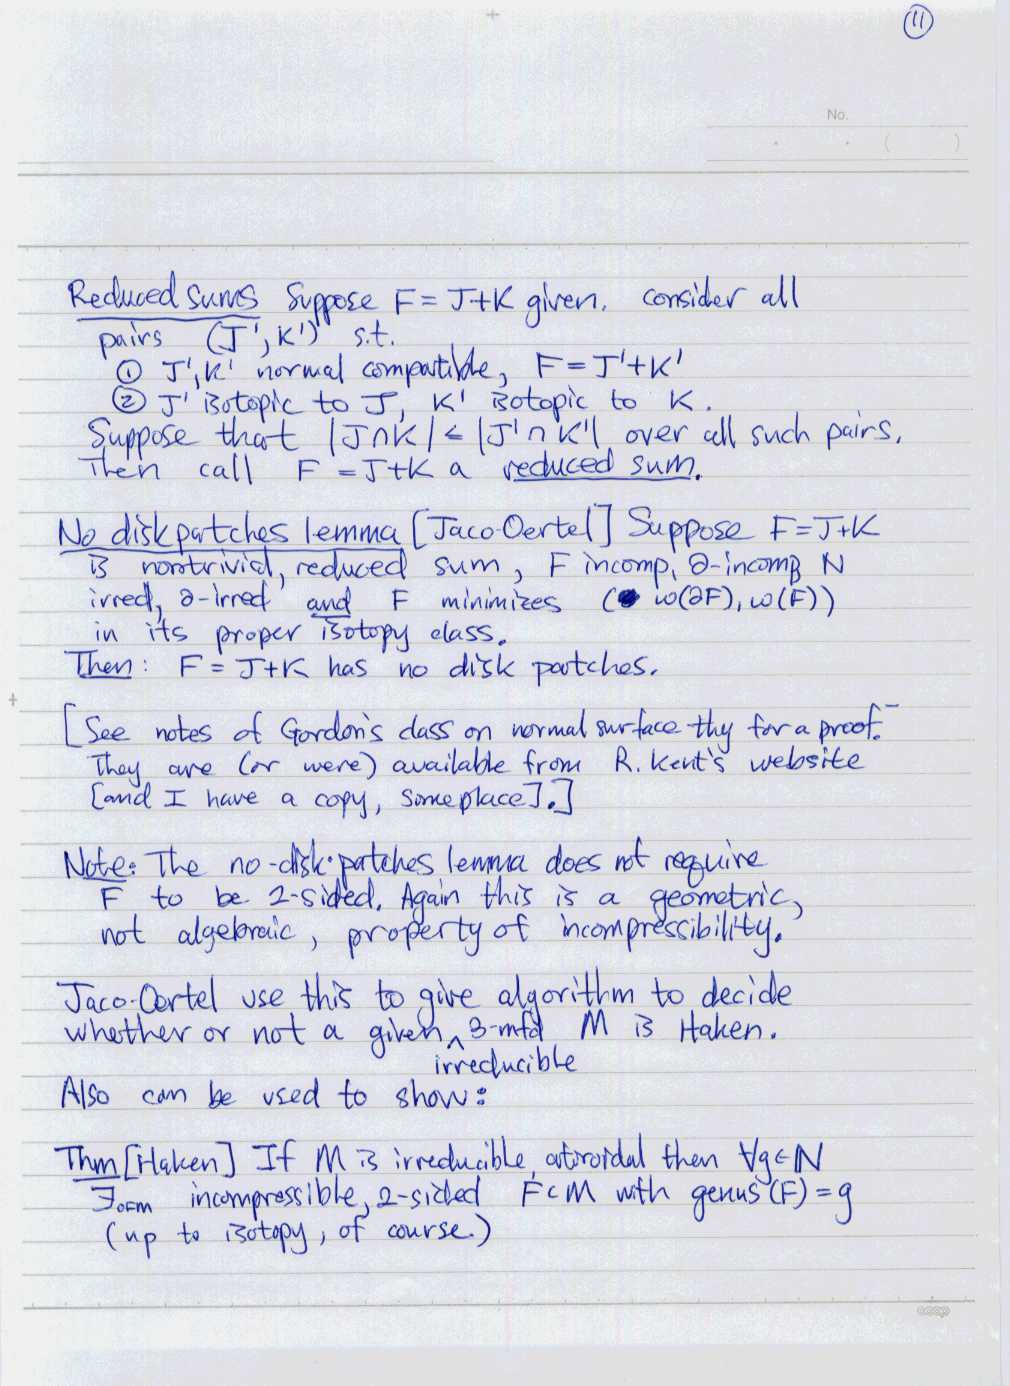 11
No.
( )
Reduced sums Suppose F = J+K given. consider all
pairs (J', K') s.t.
① J', K' normal compatible, F = J'+K'
② J' isotopic to J, K' isotopic to K.
Suppose that |J∩K| ≤ |J'∩K'| over all such pairs.
Then call F = J+K a reduced sum.
No disk patches lemma [Jaco-Oertel] Suppose F=J+K
is nontrivial, reduced sum, F incomp, ∂-incomp N
irred, ∂-irred and F minimizes ( ω(∂F), ω(F))
in its proper isotopy class.
Then: F = J+K has no disk patches.
[See notes of Gordon's class on normal surface thy for a proof.
They are (or were) available from R. Kent's website
[and I have a copy, someplace].]
Note: The no-disk-patches lemma does not require
F to be 2-sided. Again this is a geometric,
not algebraic, property of incompressibility.
Jaco-Oertel use this to give algorithm to decide
whether or not a given ^ 3-mfd M is Haken.
irreducible
Also can be used to show:
Thm [Haken] If M is irreducible, atoroidal then ∀g∈N
∃ o f m incompressible, 2-sided F⊂M with genus(F) = g
(up to isotopy, of course.)
coop